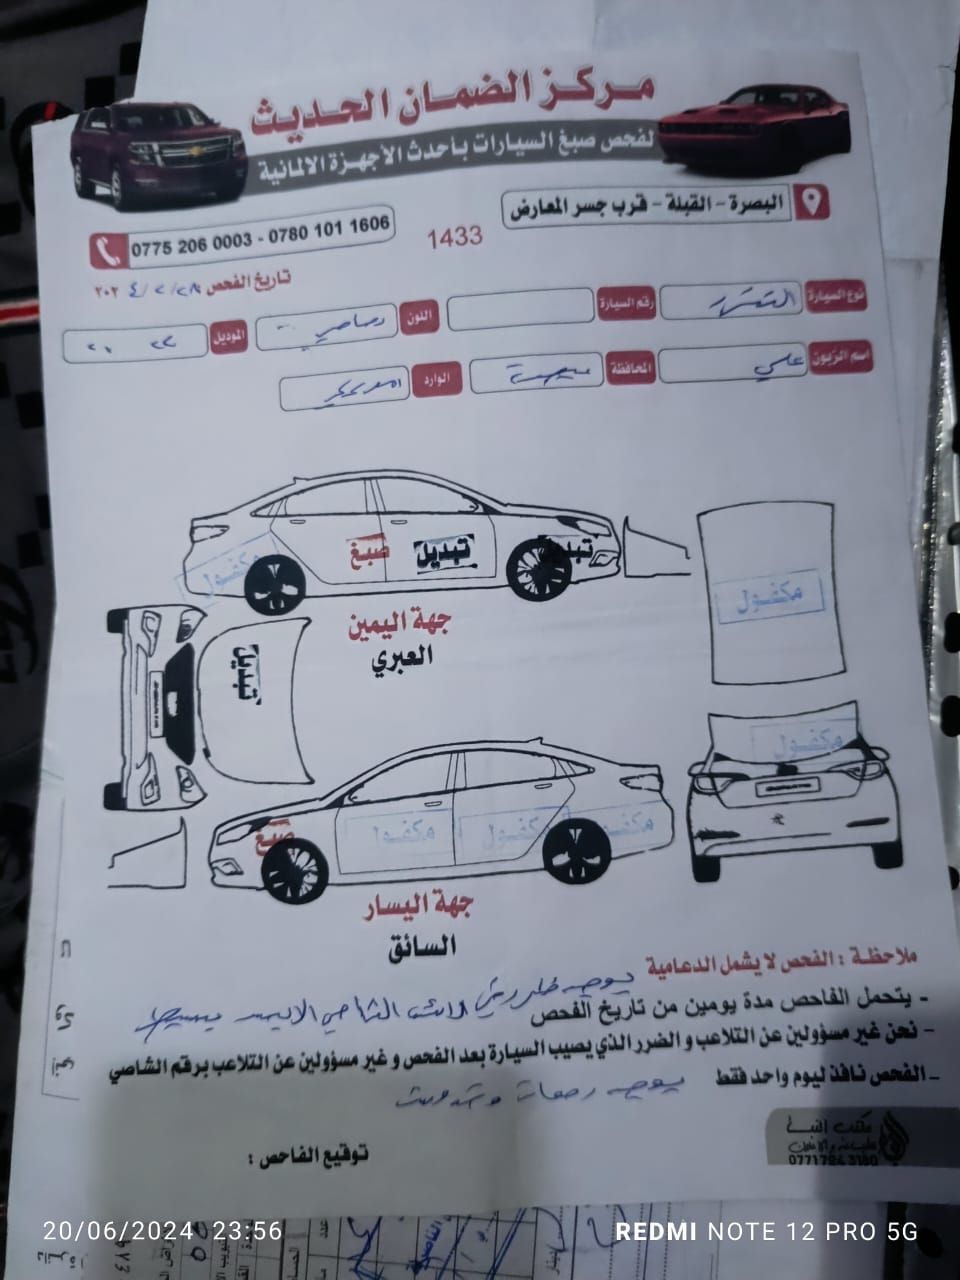 مركز الضمان الحديث
لفحص صبغ السيارات بأحدث الأجهزة الالمانية
البصرة - القبلة - قرب جسر المعارض
0775 206 0003 - 0780 101 1606
1433
تاريخ الفحص ٢٨ / ٢ / ٢٠٢٤
نوع السيارة النترا رقم السيارة اللون رصاصي الموديل ٢٠ ٢٣
اسم الزبون علي المحافظة بصرة الوارد امريكي
مكفول صبغ تبديل تبديل
مكفول
جهة اليمين
العبري
تبديل
مكفول
صبغ مكفول مكفول مكفول
جهة اليسار
السائق
ملاحظة : الفحص لا يشمل الدعامية
- يتحمل الفاحص مدة يومين من تاريخ الفحص
يوجد الشاصي الايمن
- نحن غير مسؤولين عن التلاعب و الضرر الذي يصيب السيارة بعد الفحص و غير مسؤولين عن التلاعب برقم الشاصي
- الفحص نافذ ليوم واحد فقط
يوجد
توقيع الفاحص :
20/06/2024 23:56
REDMI NOTE 12 PRO 5G